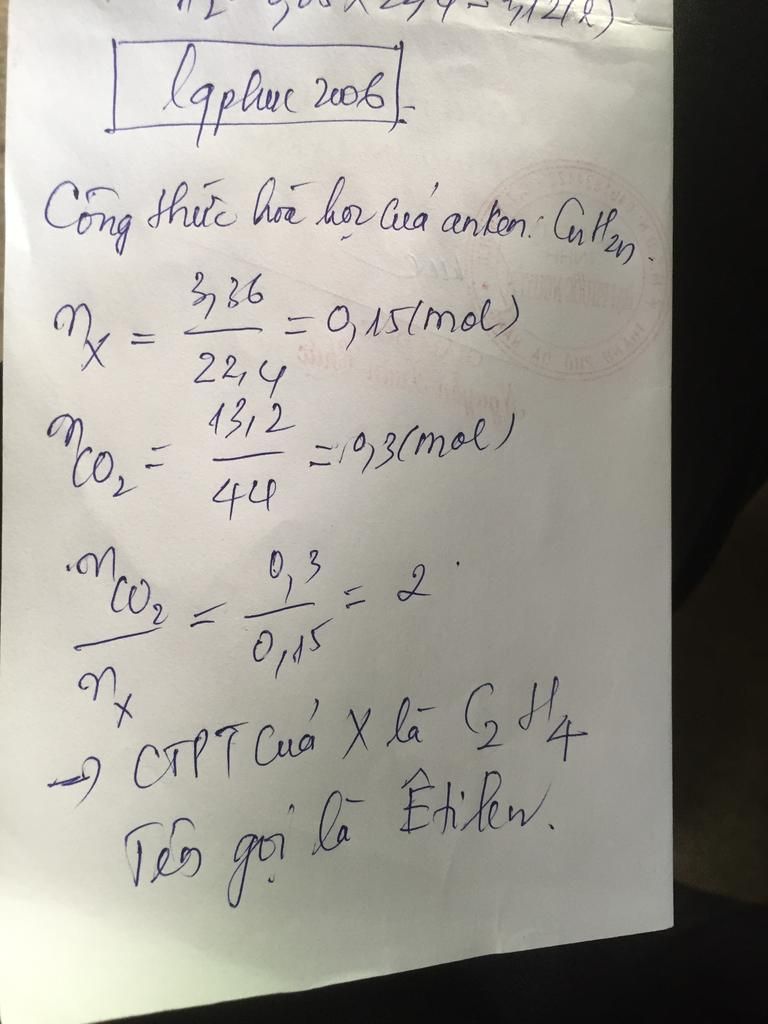 lqphuc 2006
Công thức hoá học của anken: CnH2n.
nX = 3,36 / 22,4 = 0,15 (mol)
nCO2 = 13,2 / 44 = 0,3 (mol)
nCO2 / nX = 0,3 / 0,15 = 2
→ CTPT của X là C2H4
Tên gọi là Êtilen.